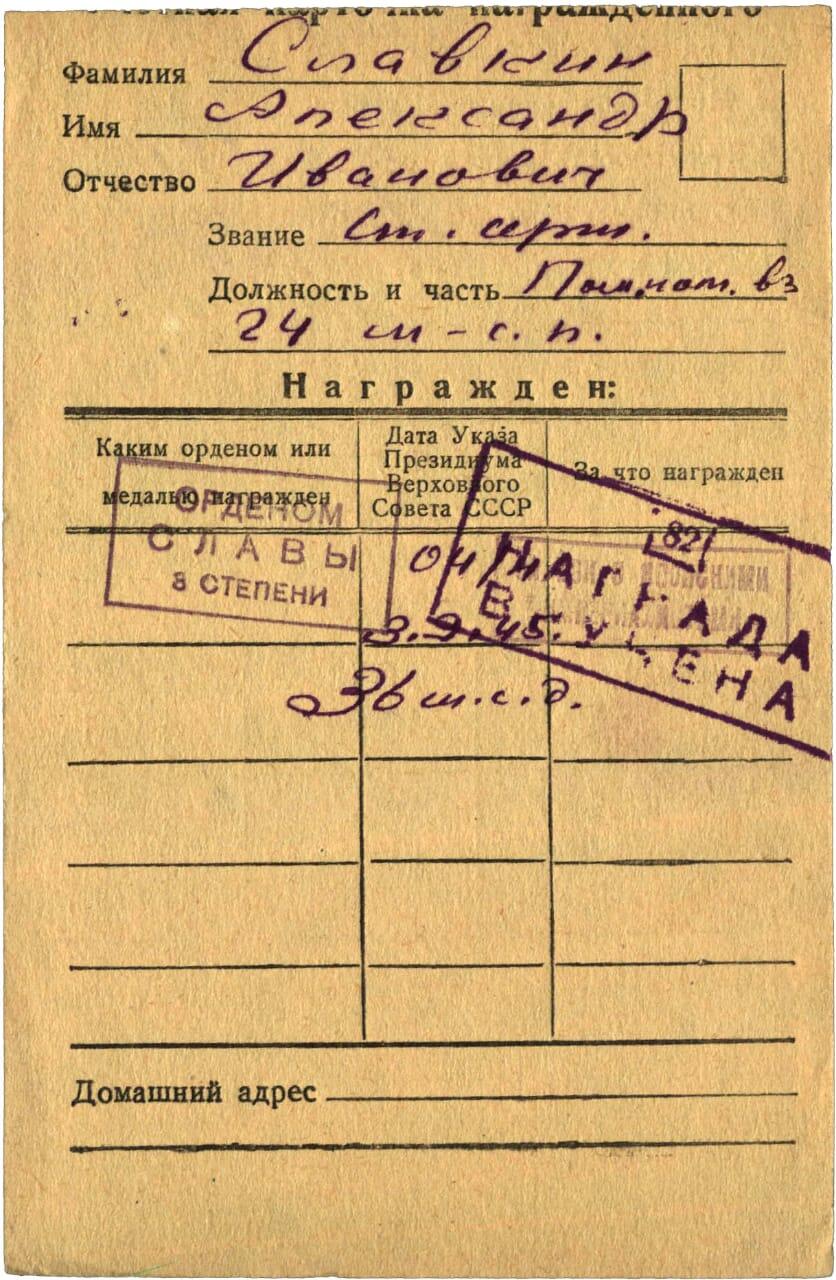 карточка награжденного
Фамилия Славкин
Имя Александр
Отчество Иванович
Звание Ст. серж.
Должность и часть Пом. ком. вз
24 м-с. п.
Награжден:
Каким орденом или медалью награжден
Дата Указа Президиума Верховного Совета СССР
За что награжден
ОРДЕНОМ
СЛАВЫ
3 СТЕПЕНИ
04/Н
3.9.45.
36 м.с.д.
82
НАГРАДА
ВРУЧЕНА
Домашний адрес